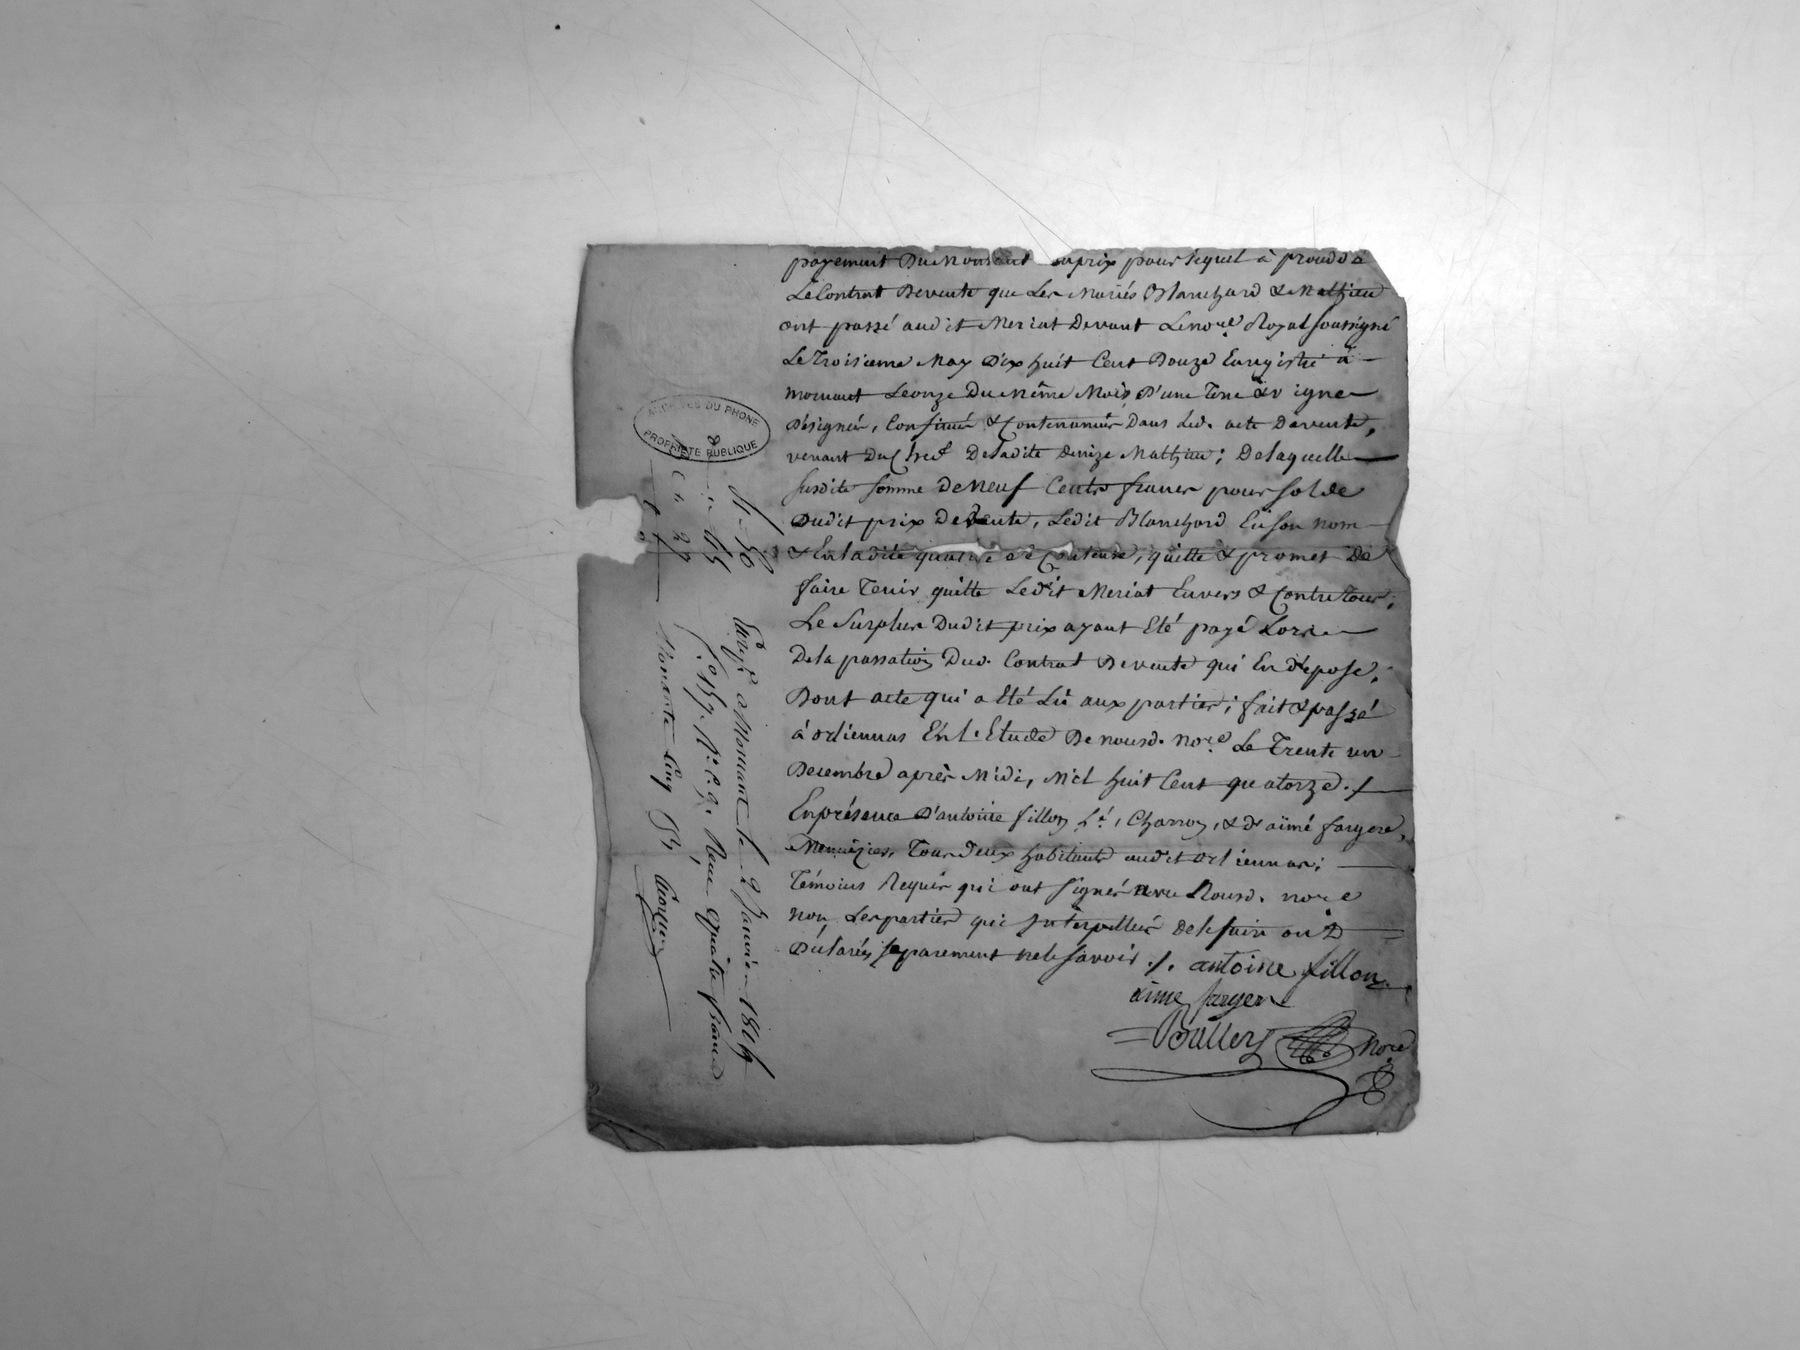 payement Du Montant auprix pour lequel à procédé
Le Contrat Devente que Les Mariés Blanchard & Mathieu
ont passé audit Meriat Devant Lenore. Royal soussigné
Le Troisieme May Dix huit Cent Douze Enregistré à
mornant Leonze Du Même Mois, D'une Terre & vigne
Désignés, Confinés & Contenancés Dans Led. acte Devente,
venant Du Chef Deladite Denize Mathieu; Delaquelle
susdite somme De Neuf Cents francs pour solde
Dudit prix De Vente, Ledit Blanchard En son nom
& En ladite qualité quitte & promet De
faire Tenir quitte Ledit Meriat Envers & Contre tous;
Le Surplus Dudit prix ayant Eté payé Lors
Dela passation Dud. Contrat Devente qui En dépose;
Dont acte qui a Eté Lû aux parties; fait & passé
à orliennas En l'Etude De nousd. nore. Le Trente un
Decembre après Midi, Mil huit Cent quatorze ./.
Enprésence D'antoine fillon charron, & D'aimé fargere,
Menuizier, Tous Deux habitants audit orliennas;
Témoins Requis qui ont signés avec Nousd. nore
non Les parties qui Interpellées dele faire ont
Déclarés séparement nele savoir ./. antoine fillon
aime fargere
Baller Nore
ARCHIVES DU RHONE
PROPRIÉTÉ PUBLIQUE
Enregé. à Mornant le 2 Janvier 1815
f.o 157. R.o C. 9. Reçu quatre francs